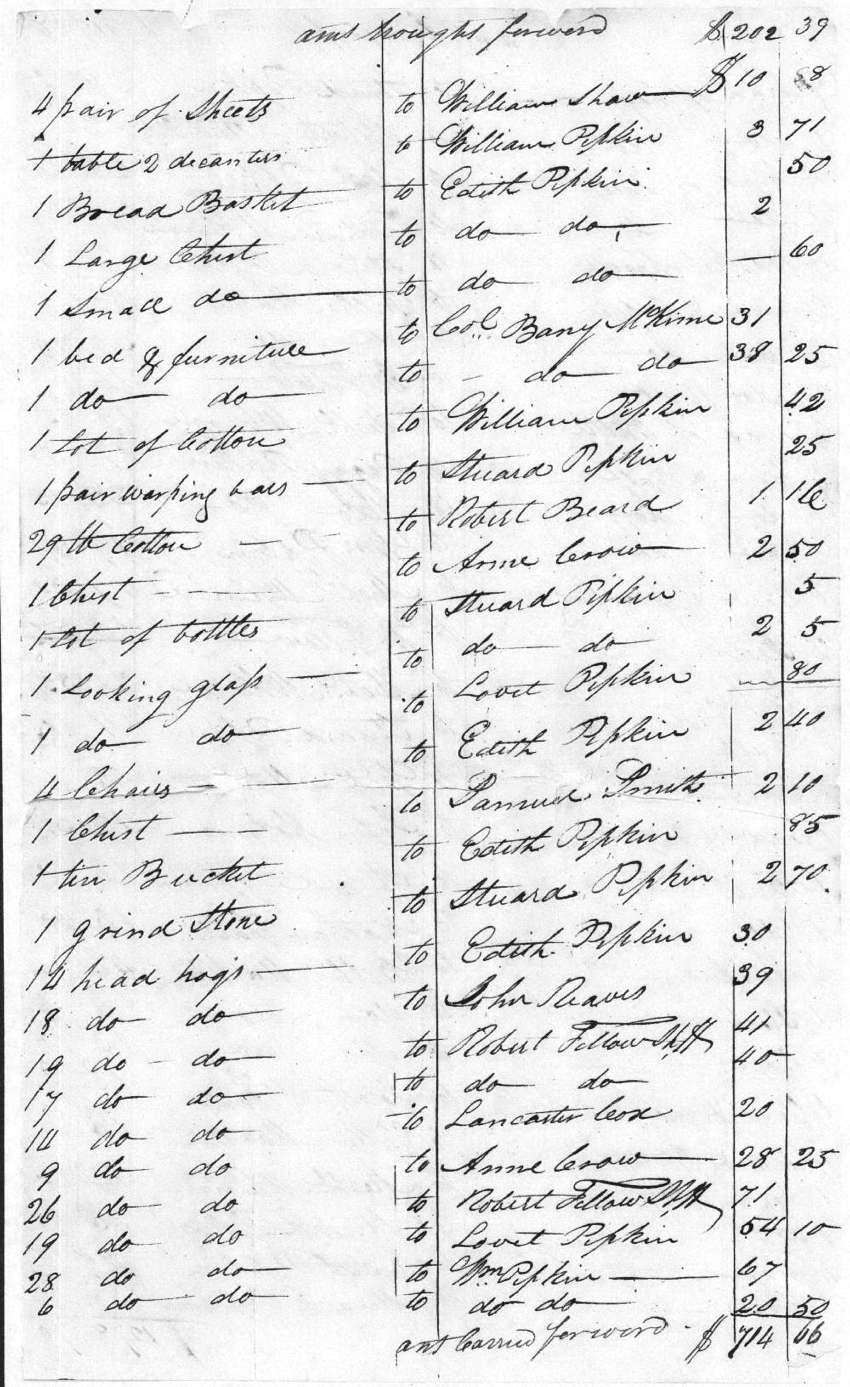 amt brought forward $202 39
4 pair of Sheets to William Shaw $10 58
1 table 2 decanters to William Pipkin 3 71
1 Bread Basket to Edith Pipkin 50
1 Large Chest to do do 2
1 Small do to do do — 60
1 bed & furniture to Col. Barny McKinne 31
1 do do to - do do 38 25
1 Lot of Cotton to William Pipkin 42
1 pair warping bars to Stuard Pipkin 25
29 lb Cotton to Robert Beard 1 16
1 Chest to Anne Crow 2 50
1 Lot of bottles to Stuard Pipkin 5
1 Looking glass to do do 2 5
1 do do to Lovet Pipkin 80
4 Chairs to Edith Pipkin 2 40
1 Chest to Samuel Smith 2 10
1 tin Bucket to Edith Pipkin 85
1 grind Stone to Stuard Pipkin 2 70
14 head hogs to Edith Pipkin 30
18 do do to John Reaves 39
19 do do to Robert Fellow Shff 41
17 do do to do do 40
14 do do to Lancaster Cox 20
9 do do to Anne Crow 28 25
26 do do to Robert Fellow Shff 71
19 do do to Lovet Pipkin 54 10
28 do do to Wm Pipkin 67
6 do do to do do 20 50
amt Carried forward $714 66